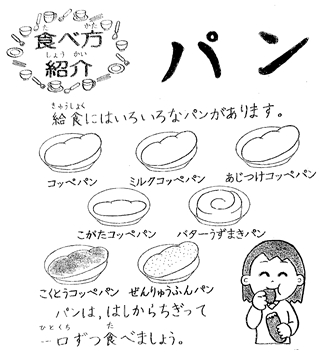 食べ方
紹介
パン
給食にはいろいろなパンがあります。
コッペパン ミルクコッペパン あじつけコッペパン
こがたコッペパン バターうずまきパン
こくとうコッペパン ぜんりゅうふんパン
パンは、はしからちぎって
一口ずつ食べましょう。